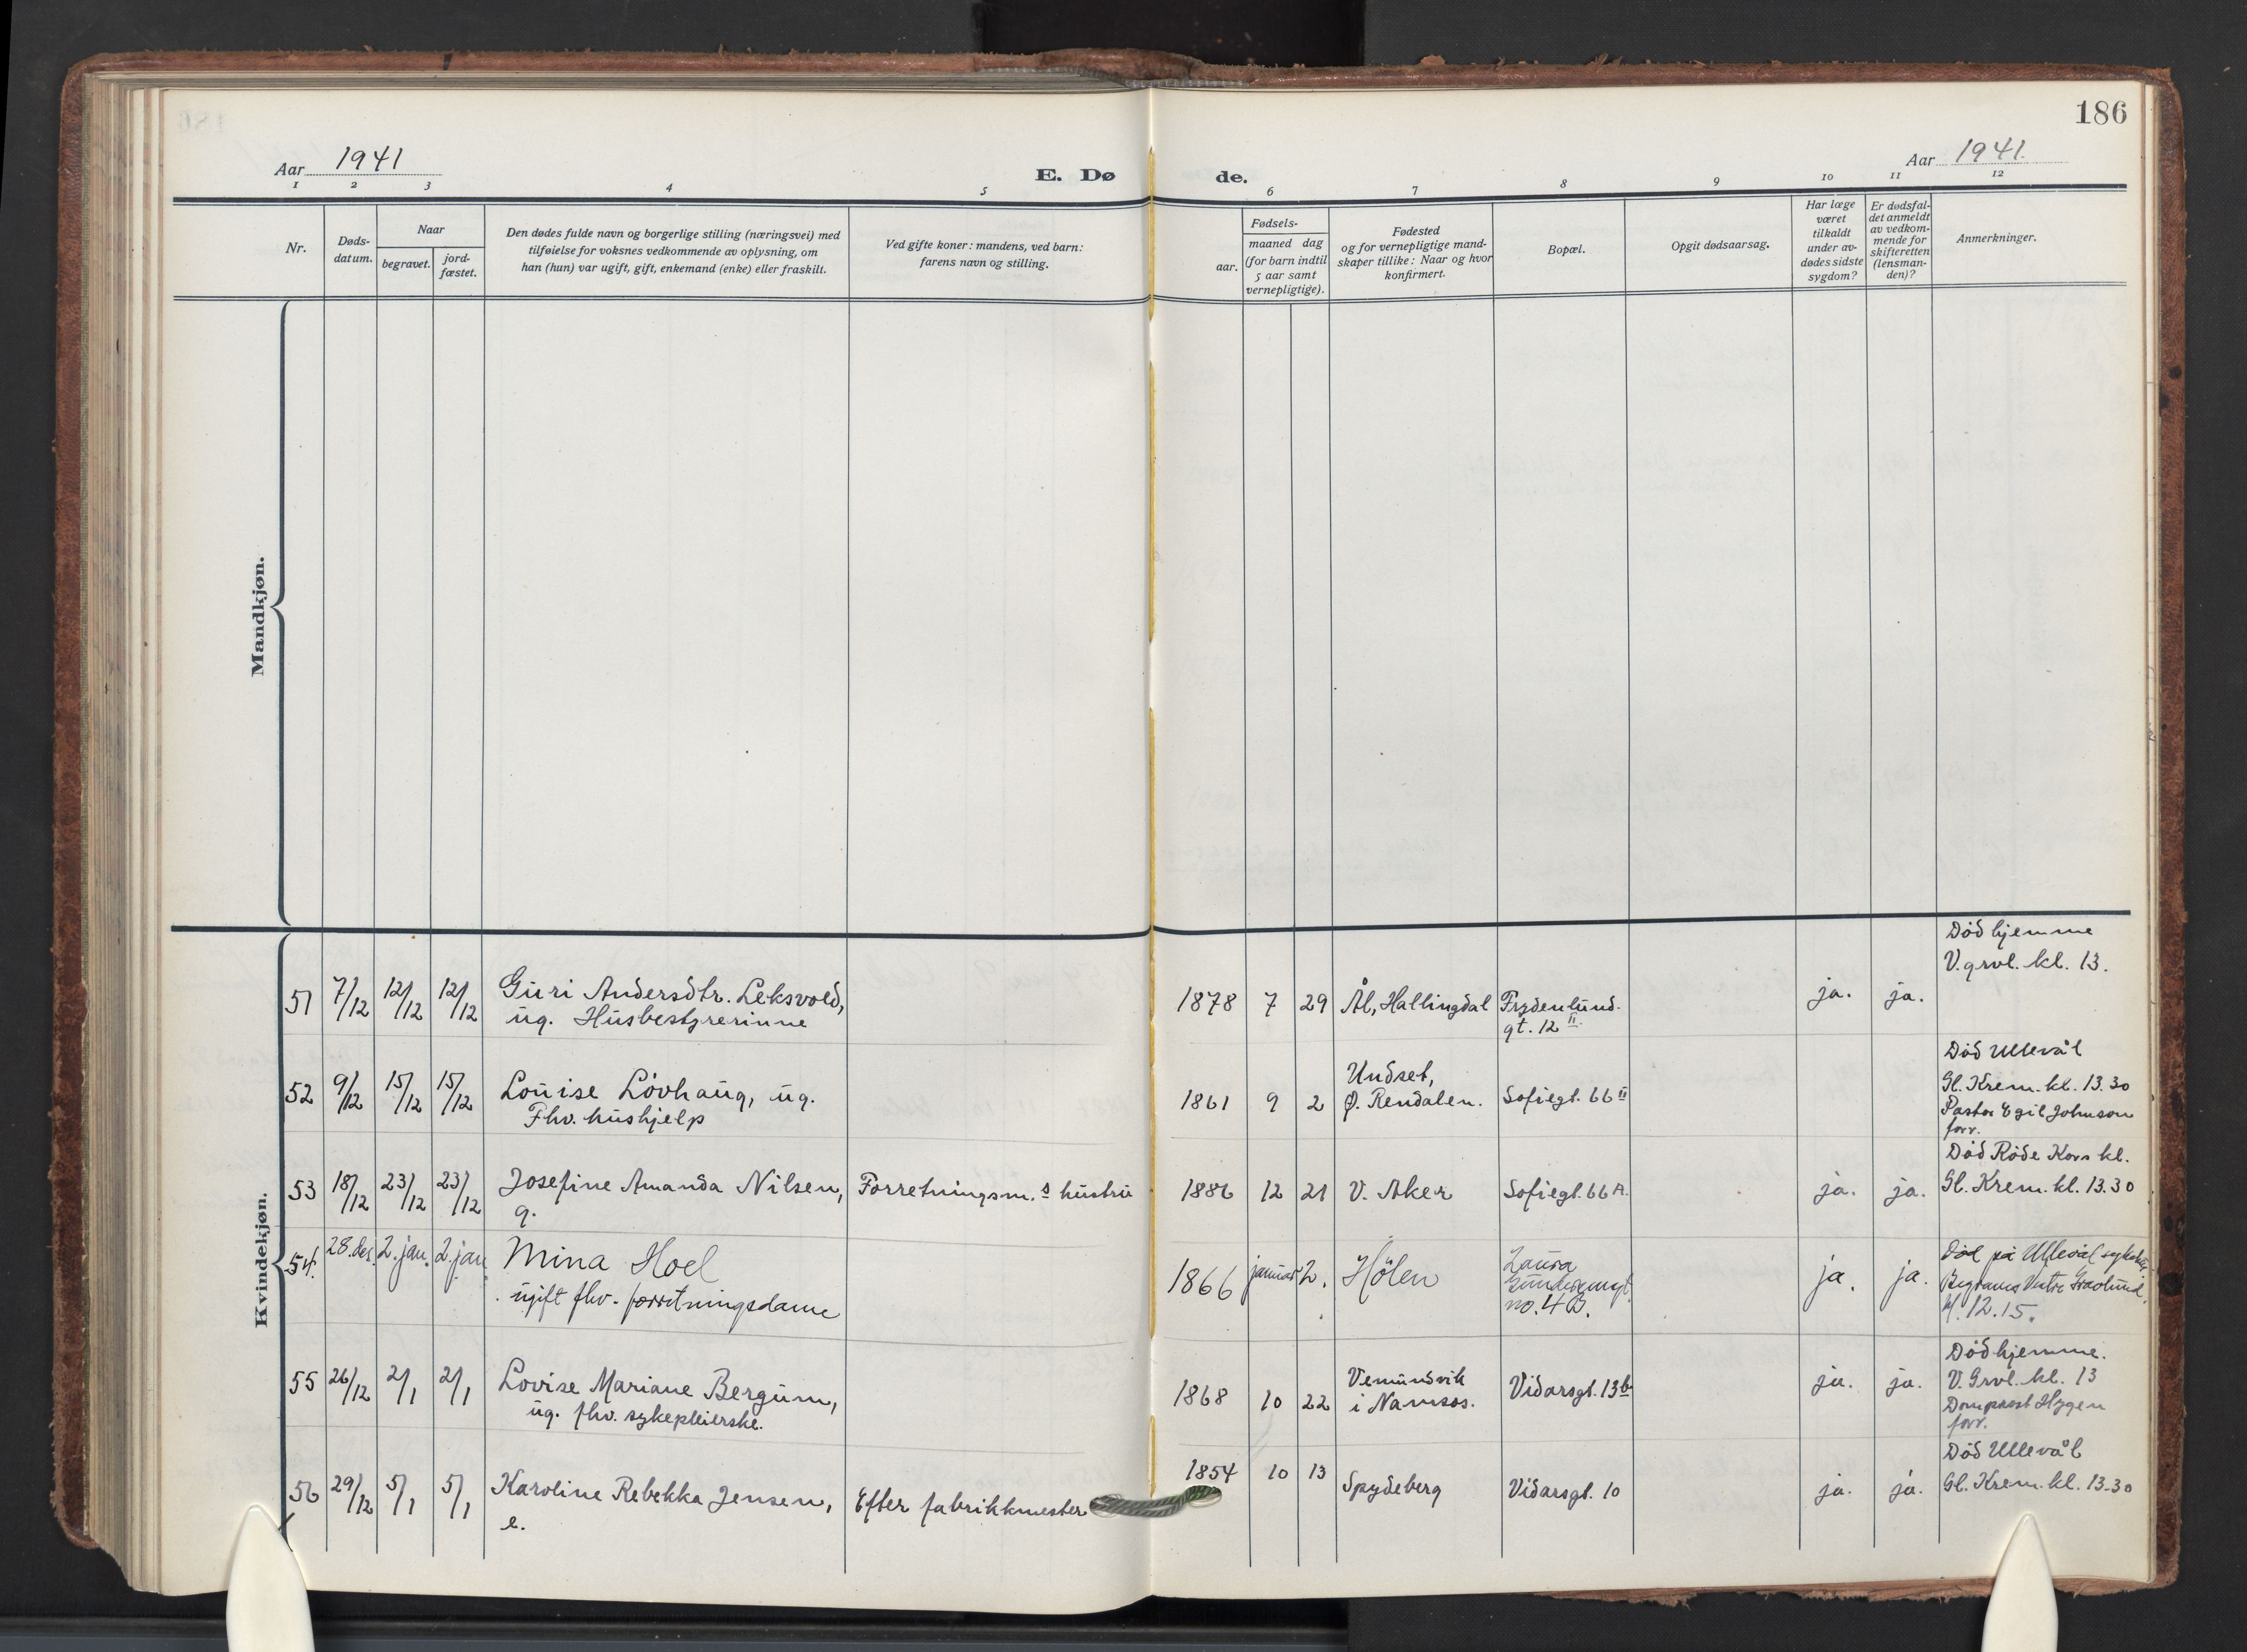 186
Aar 1941
E. Dø de.
Aar 1941.
1 2 3 4 5 6 7 8 9 10 11 12
Nr.
Døds-
datum.
Naar
begravet.
jord-
fæstet.
Den dødes fulde navn og borgerlige stilling (næringsvei) med
tilføielse for voksnes vedkommende av oplysning, om
han (hun) var ugift, gift, enkemand (enke) eller fraskilt.
Ved gifte koner: mandens, ved barn:
farens navn og stilling.
Fødsels-
aar.
maaned dag
(for barn indtil
5 aar samt
vernepligtige).
Fødested
og for vernepligtige mand-
skaper tillike: Naar og hvor
konfirmert.
Bopæl.
Opgit dødsaarsag.
Har læge
været
tilkaldt
under av-
dødes sidste
sygdom?
Er dødsfal-
det anmeldt
av vedkom-
mende for
skifteretten
(lensman-
den)?
Anmerkninger.
Mandkjøn.
Kvindekjøn.
51 7/12 12/12 12/12
Guri Andersdtr. Leksvold,
ug. Husbestyrerinne
1878 7 29 Ål, Hallingdal
Frydenlund-
gt. 12 II.
ja. ja.
Död hjemme
V. grvl. kl. 13.
52 9/12 15/12 15/12
Louise Lövhaug, ug.
Fhv. hushjelp
1861 9 2
Undset,
Ø. Rendalen.
Sofiegt. 66 II
Död Ullevål
Gl. Krem. kl. 13.30
Pastor Egil Johnson
forr.
53 18/12 23/12 23/12
Josefine Amanda Nilsen,
g.
Forretningsm.s hustru
1886 12 21 V. Aker Sofiegt. 66 A.
ja. ja.
Död Röde Kors kl.
Gl. Krem. kl. 13.30
54. 28. des. 2. jan. 2. jan.
Mina Hoel
ugift fhv. forretningsdame
1866 januar 2. Hölen
Laura
Gundersensgt.
no. 4 B.
ja. ja.
Död på Ullevål sykehus.
Vestre Gravlund.
kl. 12.15.
55 26/12 2/1 2/1
Lovise Mariane Bergum,
ug. fhv. sykepleierske.
1868 10 22
Vemundvik
i Namsos.
Vidarsgt. 13 b
ja. ja.
Död hjemme.
V. Grvl. kl. 13
Domprost Hygen
forr.
56 29/12 5/1 5/1
Karoline Rebekka Jensen,
e.
Efter fabrikkmester
1854 10 13 Spydeberg Vidarsgt. 10
ja. ja.
Död Ullevål
Gl. Krem. kl. 13.30